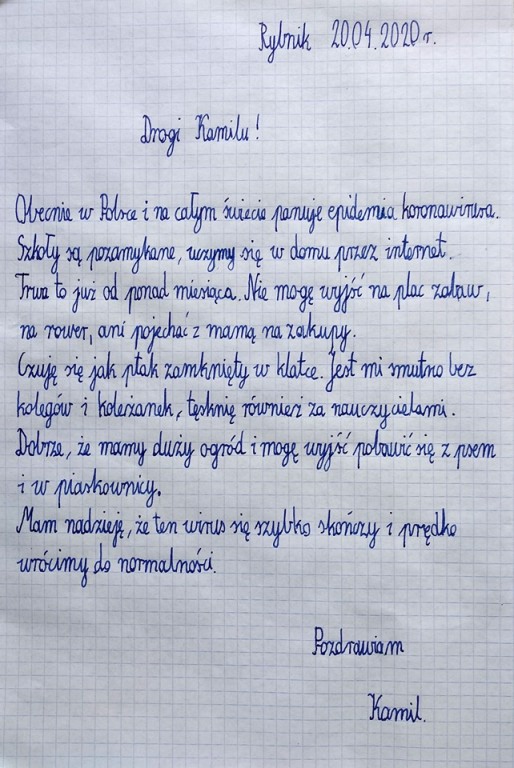 Rybnik 20.04.2020 r.
Drogi Kamilu!
Obecnie w Polsce i na całym świecie panuje epidemia koronawirusa.
Szkoły są pozamykane, uczymy się w domu przez internet.
Trwa to już od ponad miesiąca. Nie mogę wyjść na plac zabaw,
na rower, ani pojechać z mamą na zakupy.
Czuję się jak ptak zamknięty w klatce. Jest mi smutno bez
kolegów i koleżanek, tęsknię również za nauczycielami.
Dobrze, że mamy duży ogród i mogę wyjść pobawić się z psem
i w piaskownicy.
Mam nadzieję, że ten wirus się szybko skończy i prędko
wrócimy do normalności.
Pozdrawiam
Kamil.